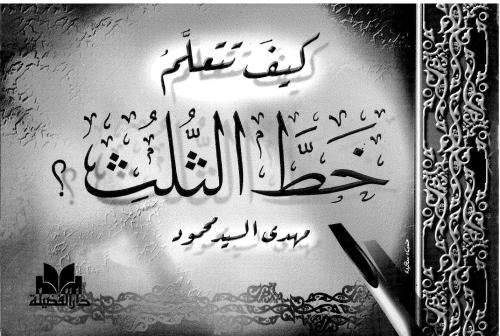 كيفَ تتعلَّمُ
خَطَّ الثُّلُثِ ؟
مهدى السيد محمود
دار الفضيلة